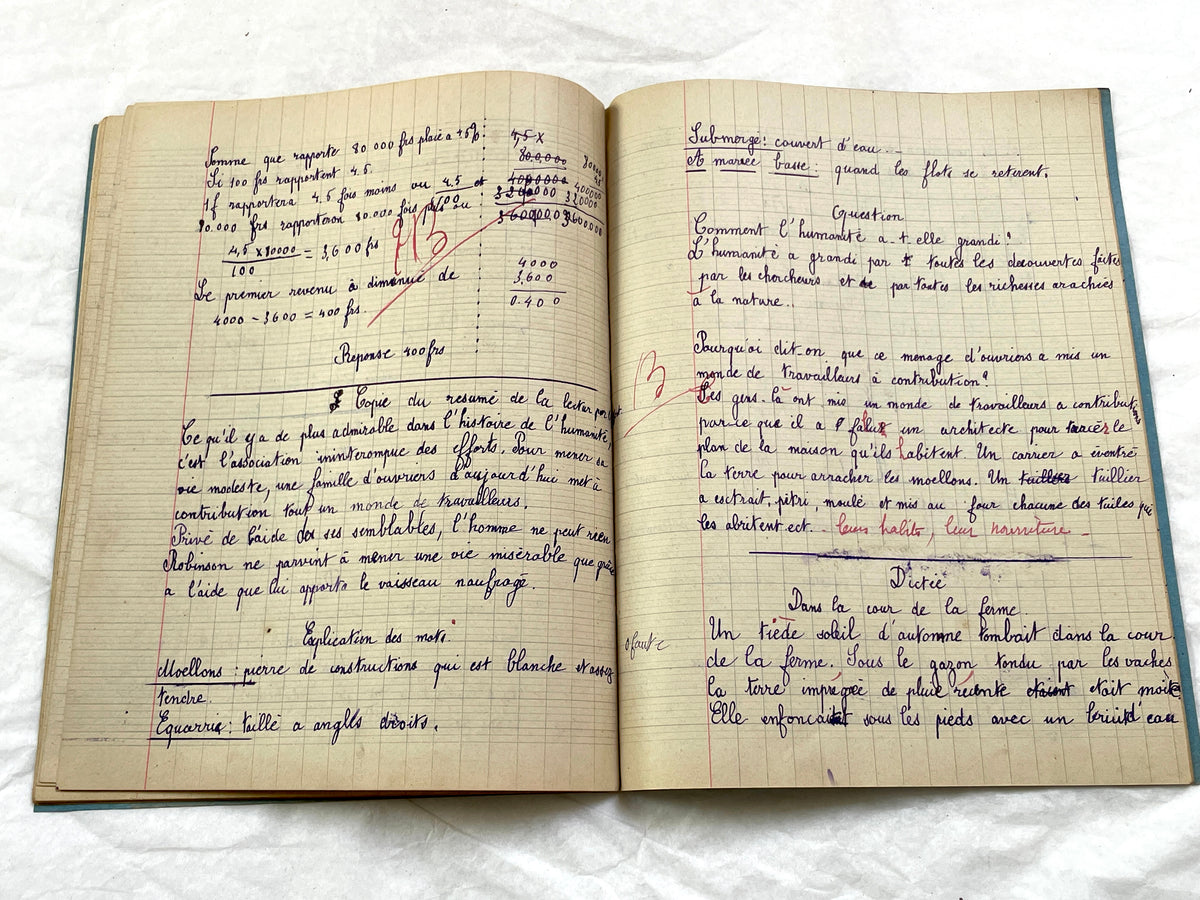 Somme que rapporte 80.000 frs placé à 4.5%:
Si 100 frs rapportent 4.5
1f rapportera 4.5 fois moins ou 4.5/100 et
80.000 frs rapporteron 80.000 fois plus ou
4,5 x 80000 / 100 = 3,600 frs
Le premier revenu à diminué de
4000 - 3600 = 400 frs.
4,5 x
80,0000
400,0000
3200000
3600000,0
80000
45
400000
320000
3600000
4000
3,600
0.400
TB
Reponse 400 frs
Copie du resumé de la lectur
Ce qu'il y a de plus admirable dans l'histoire de l'humanité,
c'est l'association ininterompue des efforts. Pour mener sa
vie modeste, une famille d'ouvriers d'aujourd'hui met à
contribution tout un monde de travailleurs.
Privé de l'aide de ses semblables, l'homme ne peut rien
Robinson ne parvint à mener une vie misérable que grâce
a l'aide que lui apporta le vaisseau naufragé.
Explication des mots.
Moellons : pierre de constructions qui est blanche et assez
tendre.
Equarrir : taillé a angles droits.
Submergé : couvert d'eau...
A marée basse : quand les flots se retirent.
Question
Comment l'humanité a-t elle grandi?
L'humanité a grandi par toutes les decouvertes faites
par les chercheurs et par toutes les richesses arachiés
à la nature..
Pourquoi dit-on que ce menage d'ouvriers a mis un
monde de travailleurs à contribution?
B
Les gens-là ont mis un monde de travailleurs a contribution
parce que il a fallu un architecte pour tracer le
plan de la maison qu'ils habitent. Un carrier a éventré
la terre pour arracher les moellons. Un tuillier tuillier
a esctrait, pétri, moulé et mis au four chacune des tuiles qui
les abritent ect. leurs habits, leur nourriture -
Dictée
Dans la cour de la ferme.
0 faute
Un tiède soleil d'automne tombait dans la cour
de la ferme. Sous le gazon tondu par les vaches
la terre imprégée de pluie récente etaient etait moite
Elle enfoncait sous les pieds avec un bruit d'eau